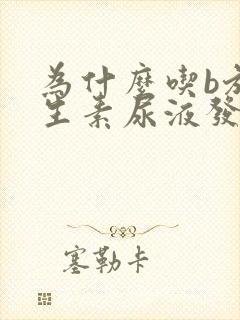 為什麼喫b
生素尿液發
塞勒卡